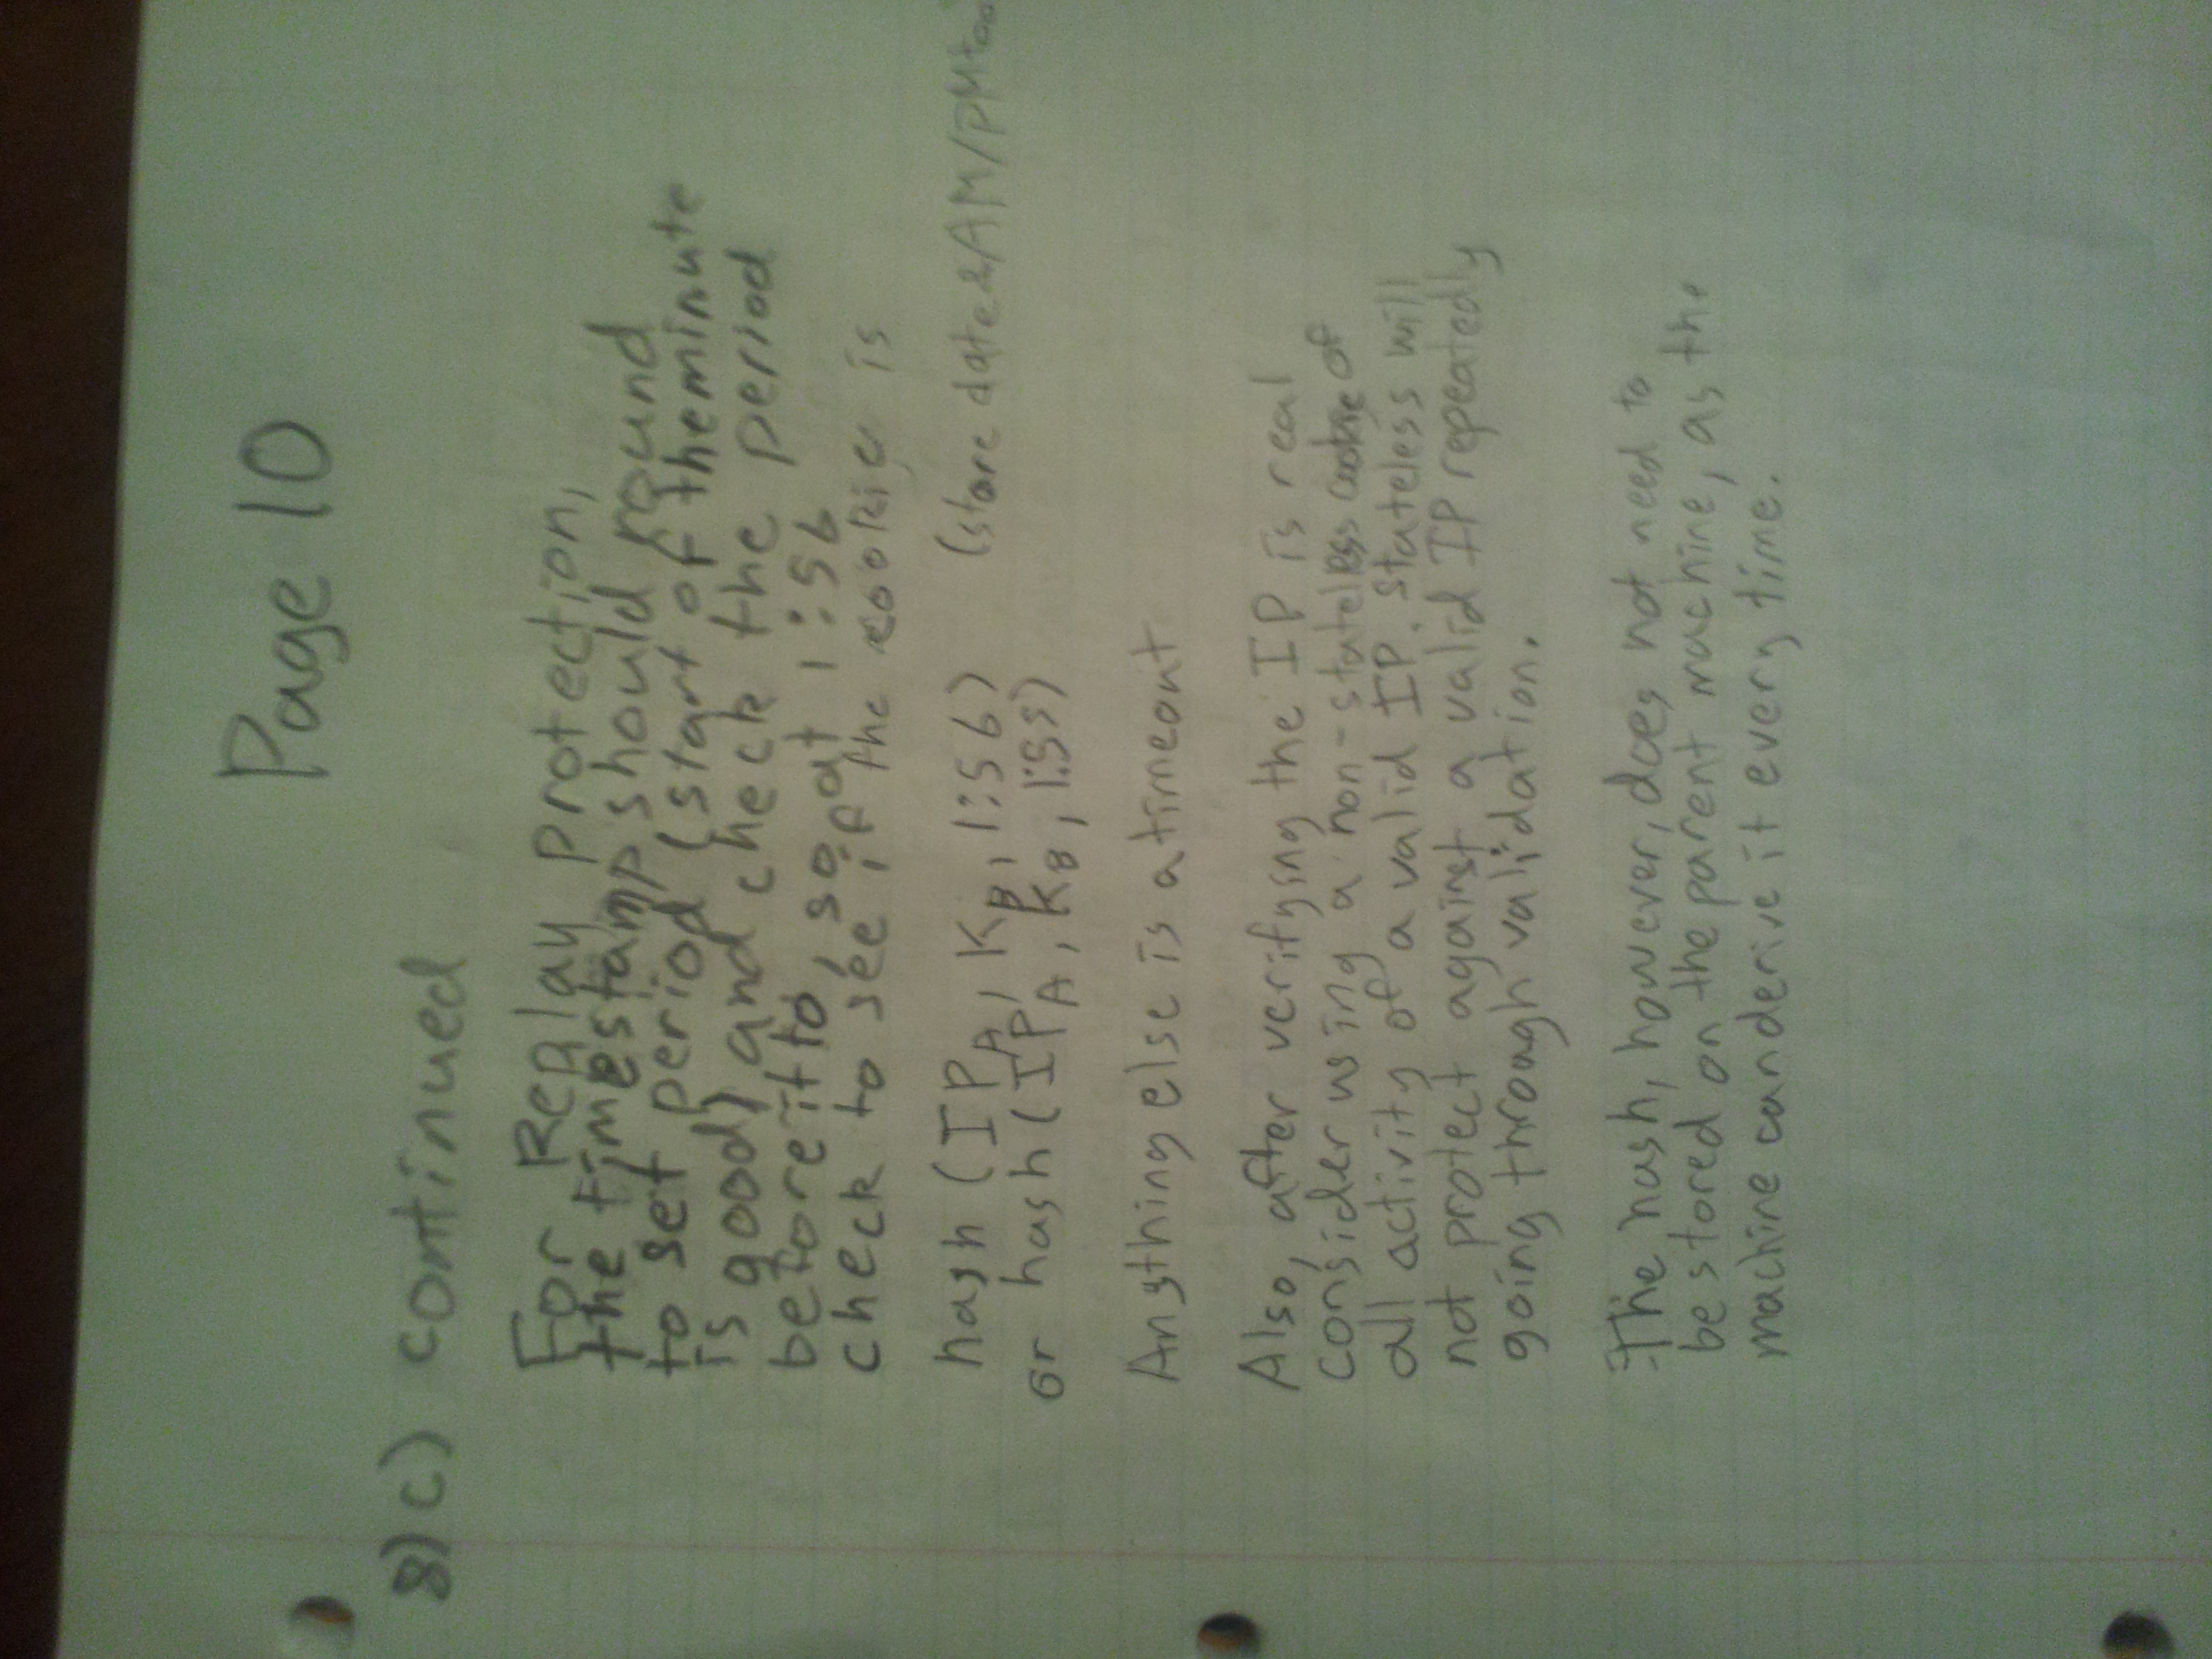 Page 10
8) c) continued
For Replay protection,
the timestamp should round
to set period (start of the minute
is good) and check the period
before it to, so at 1:56
check to see if the cookie is
hash (IP_A, K_B, 1:56) (store date & AM/PM too
or hash (IP_A, K_B, 1:55)
Anything else is a timeout
Also, after verifying the IP is real
consider using a non-stateless cookie of
all activity of a valid IP. Stateless will
not protect against a valid IP repeatedly
going through validation.
The hash, however, does not need to
be stored on the parent machine, as the
machine can derive it every time.